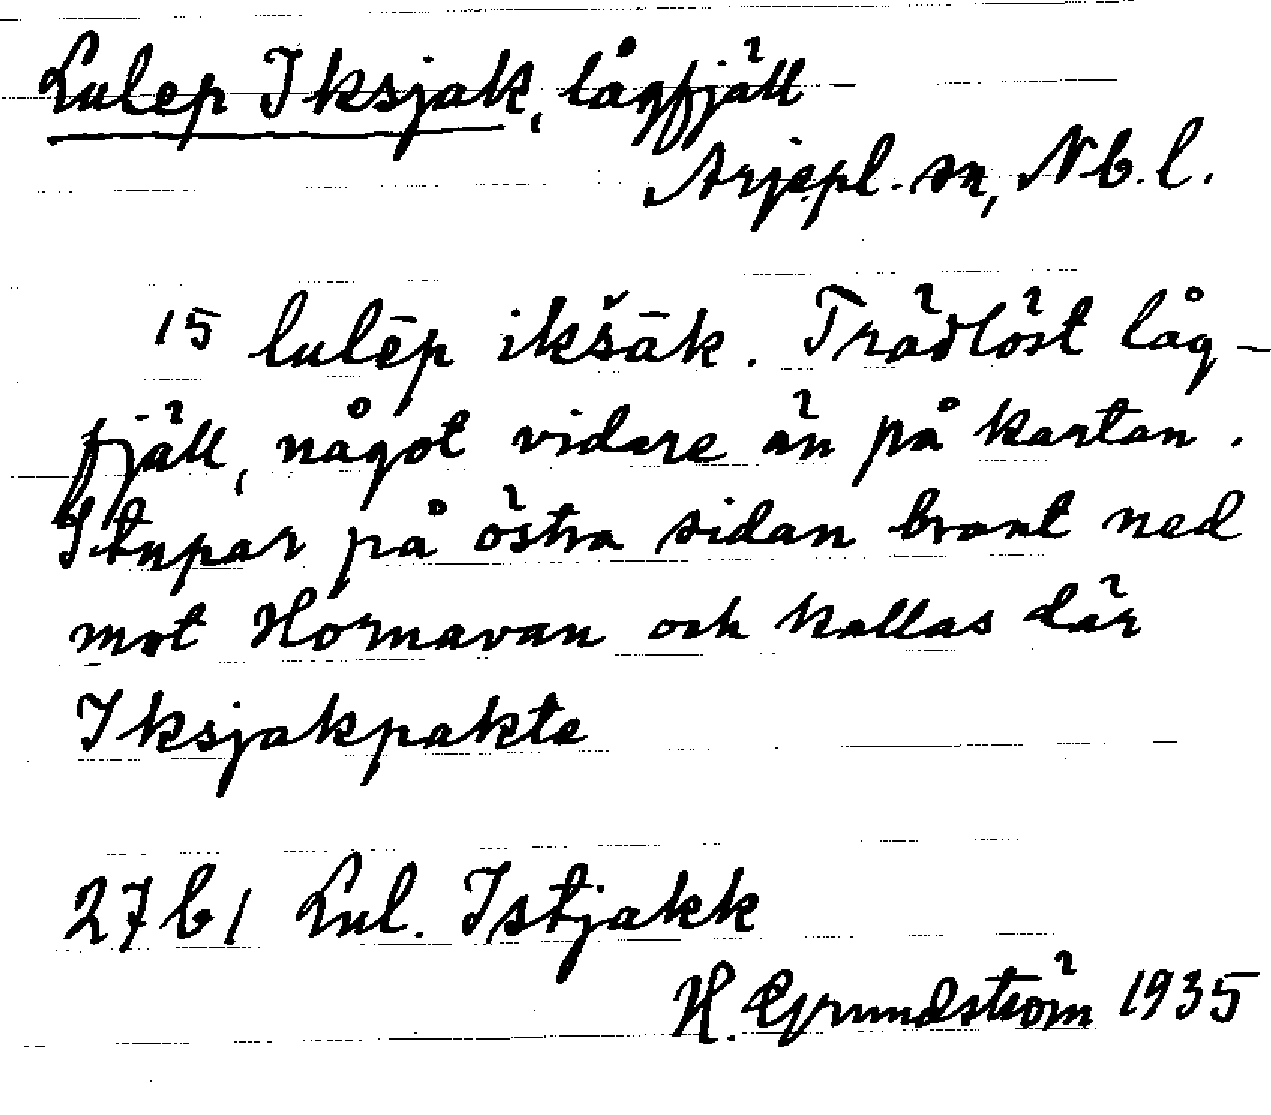 Lulep Iksjak, lågfjäll
Arjepl. sn, Nb. l.
15 lulēp ikšāk. Trädlöst låg-
fjäll, något vidare än på kartan.
Stupar på östra sidan brant ned
mot Hornavan och kallas där
Iksjakpakte
27b1 Lul. Istjakk
H. Grundström 1935